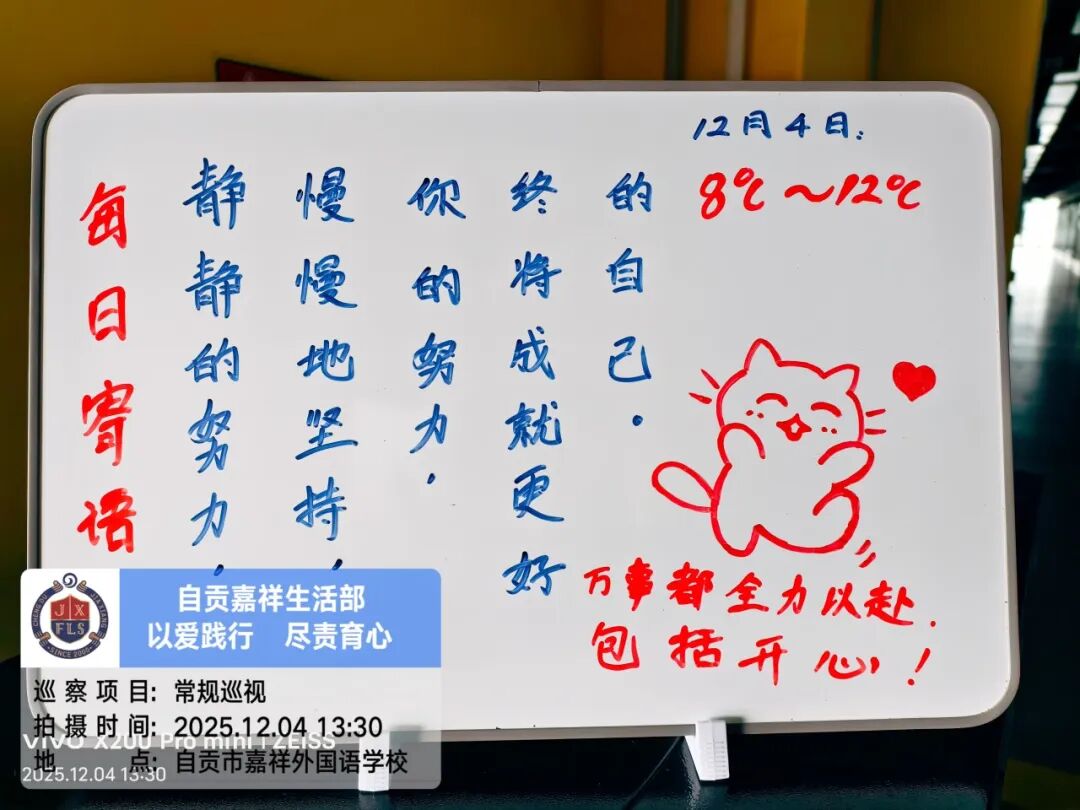 每日寄语
静静的努力，
慢慢地坚持，
你的努力，
终将成就更好
的自己.
12月4日：
8℃～12℃
万事都全力以赴.
包括开心！
JXFLS
SINCE 2005
自贡嘉祥生活部
以爱践行 尽责育心
巡察项目：常规巡视
拍摄时间：2025.12.04 13:30
地点：自贡市嘉祥外国语学校
vivo X200 Pro mini | ZEISS
2025.12.04 13:30